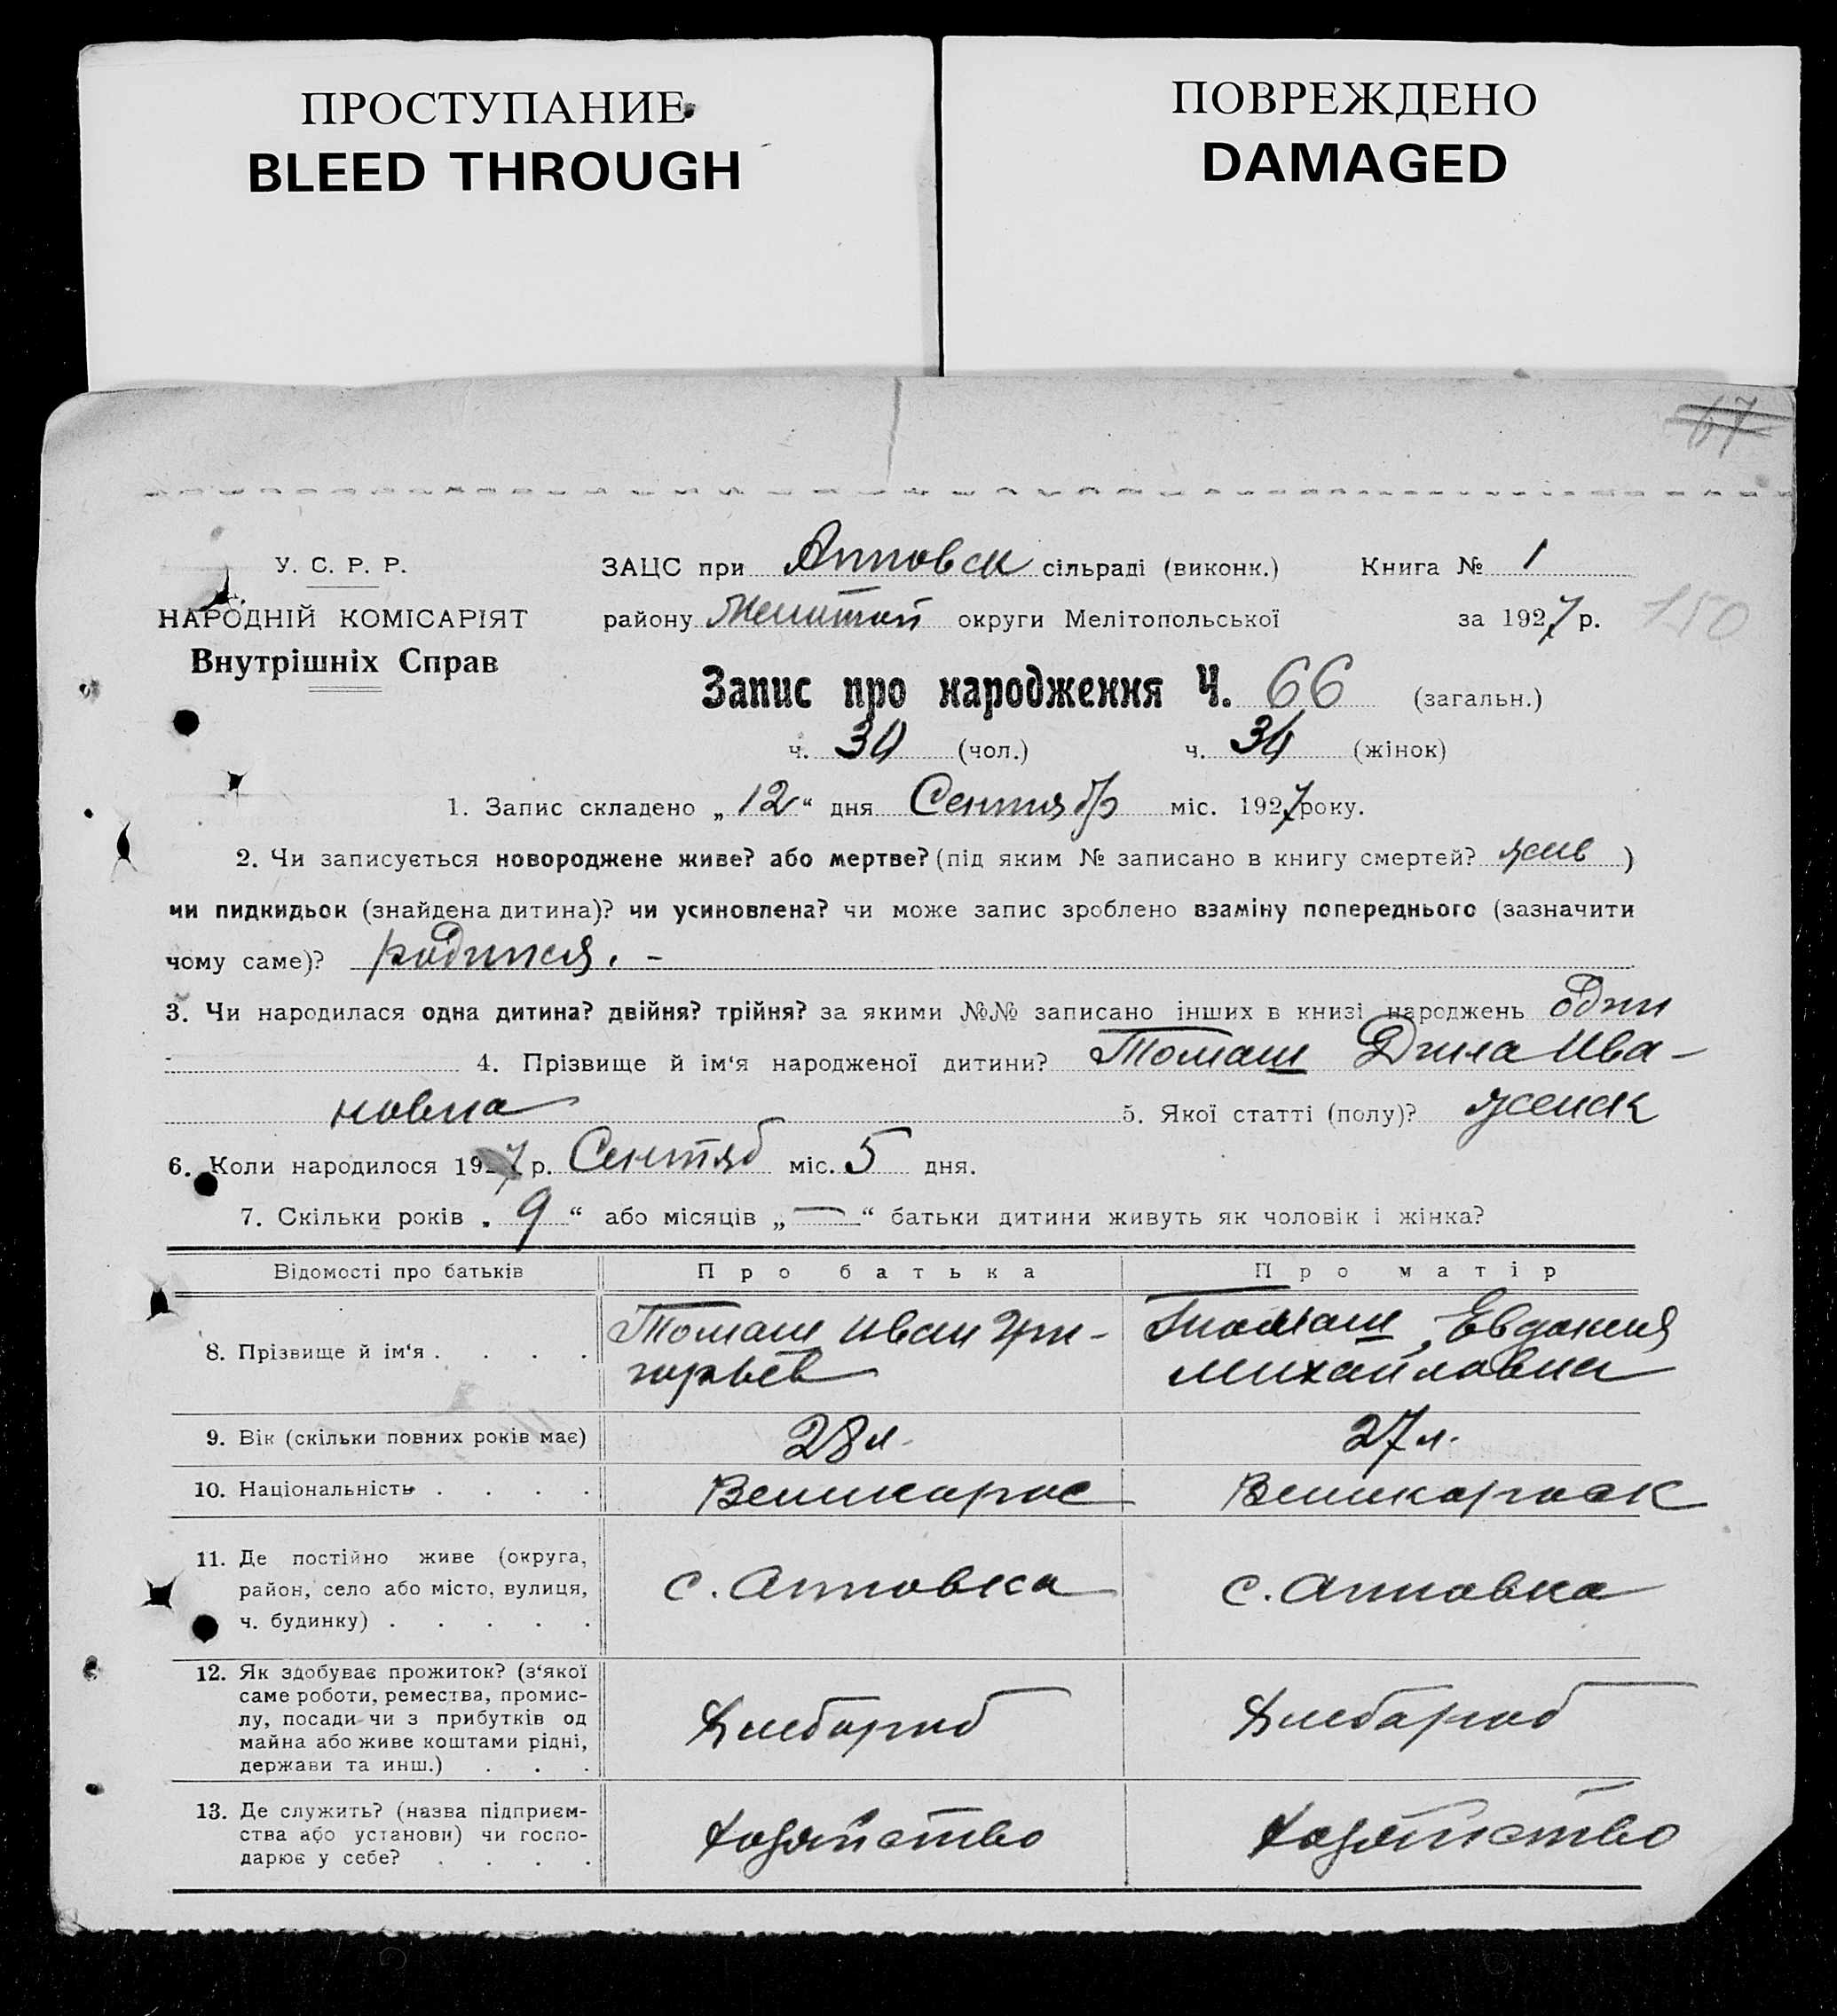 ПРОСТУПАНИЕ
BLEED THROUGH
ПОВРЕЖДЕНО
DAMAGED
67
У. С. Р. Р.
НАРОДНІЙ КОМІСАРІЯТ
Внутрішніх Справ
ЗАЦС при сільраді (виконк.) Книга № 1
району округи Мелітопольської за 1927 р.
150
Запис про народження Ч. 66 (загальн.)
ч. (чол.) ч. 34 (жінок)
1. Запис складено „12“ дня Сентябр міс. 1927 року.
2. Чи записується новороджене живе? або мертве? (під яким № записано в книгу смертей? жив )
чи пидкидьок (знайдена дитина)? чи усиновлена? чи може запис зроблено взаміну попереднього (зазначити
чому саме)? родился. -
3. Чи народилася одна дитина? двійня? трійня? за якими №№ записано інших в книзі народжень один
4. Прізвище й ім'я народженої дитини? Томаш Ива-
новна 5. Якої статті (полу)? женск
6. Коли народилося 1927 р. Сентяб міс. 5 дня.
7. Скільки років „9“ або місяців „—“ батьки дитини живуть як чоловік і жінка?
Відомості про батьків Про батька Про матір
8. Прізвище й ім'я . . . . Томаш Иван Гри-
горьев
Томаш Евдокия
Михайловна
9. Вік (скільки повних років має) 28 л. 27 л.
10. Національність . . . . Великорос Великороск
11. Де постійно живе (округа,
район, село або місто, вулиця,
ч. будинку) . . . . .
с. Анновка с. Анновка
12. Як здобуває прожиток? (з'якої
саме роботи, ремества, промис-
лу, посади чи з прибутків од
майна або живе коштами рідні,
держави та инш.) . . .
Хлебороб Хлебороб
13. Де служить? (назва підприєм-
ства або установи) чи госпо-
дарює у себе? . . . .
Хозяйство Хозяйство